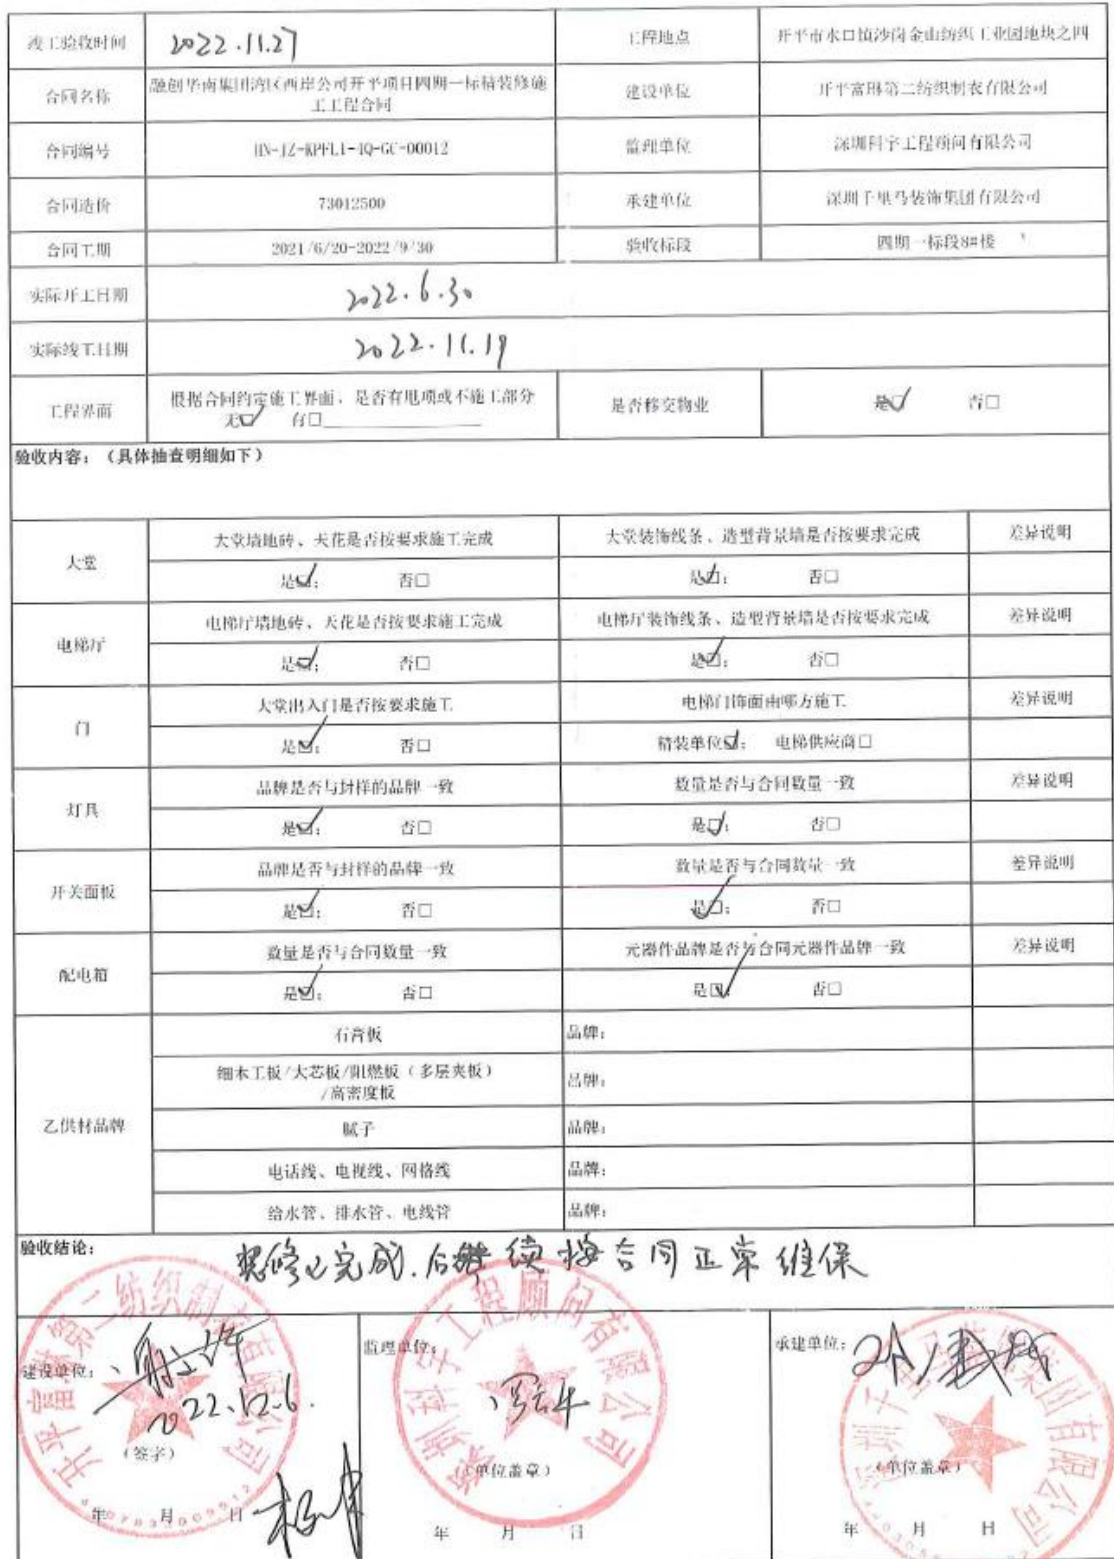 竣工验收时间 2022.11.27 工程地点 开平市水口镇沙岗金山纺织工业园地块之四
合同名称 融创华南集团湾区西岸公司开平项目四期一标精装修施
工工程合同 建设单位 开平富琳第二纺织制衣有限公司
合同编号 HN-JZ-KPFL1-4Q-GC-00012 监理单位 深圳科宇工程顾问有限公司
合同造价 73012500 承建单位 深圳千里马装饰集团有限公司
合同工期 2021/6/20-2022/9/30 验收标段 四期一标段8#楼
实际开工日期 2022.6.30
实际竣工日期 2022.11.19
工程界面 根据合同约定施工界面,是否有甩项或不施工部分
无☑ 有□ 是否移交物业 是☑ 否□
验收内容:(具体抽查明细如下)
大堂 大堂墙地砖、天花是否按要求施工完成 大堂装饰线条、造型背景墙是否按要求完成 差异说明
是☑; 否□ 是☑; 否□
电梯厅 电梯厅墙地砖、天花是否按要求施工完成 电梯厅装饰线条、造型背景墙是否按要求完成 差异说明
是☑; 否□ 是☑; 否□
门 大堂出入门是否按要求施工 电梯门饰面由哪方施工 差异说明
是☑; 否□ 精装单位☑; 电梯供应商□
灯具 品牌是否与封样的品牌一致 数量是否与合同数量一致 差异说明
是☑; 否□ 是☑; 否□
开关面板 品牌是否与封样的品牌一致 数量是否与合同数量一致 差异说明
是☑; 否□ 是☑; 否□
配电箱 数量是否与合同数量一致 元器件品牌是否与合同元器件品牌一致 差异说明
是☑; 否□ 是☑; 否□
乙供材品牌 石膏板 品牌:
细木工板/大芯板/阻燃板(多层夹板)
/高密度板 品牌:
腻子 品牌:
电话线、电视线、网络线 品牌:
给水管、排水管、电线管 品牌:
验收结论: 装修已完成,后续按合同正常维保
建设单位: 监理单位: 承建单位:
2022.12.6.
(签字) (单位盖章) (单位盖章)
年 月 日 年 月 日 年 月 日
开平富琳第二纺织制衣有限公司
深圳科宇工程顾问有限公司
深圳千里马装饰集团有限公司